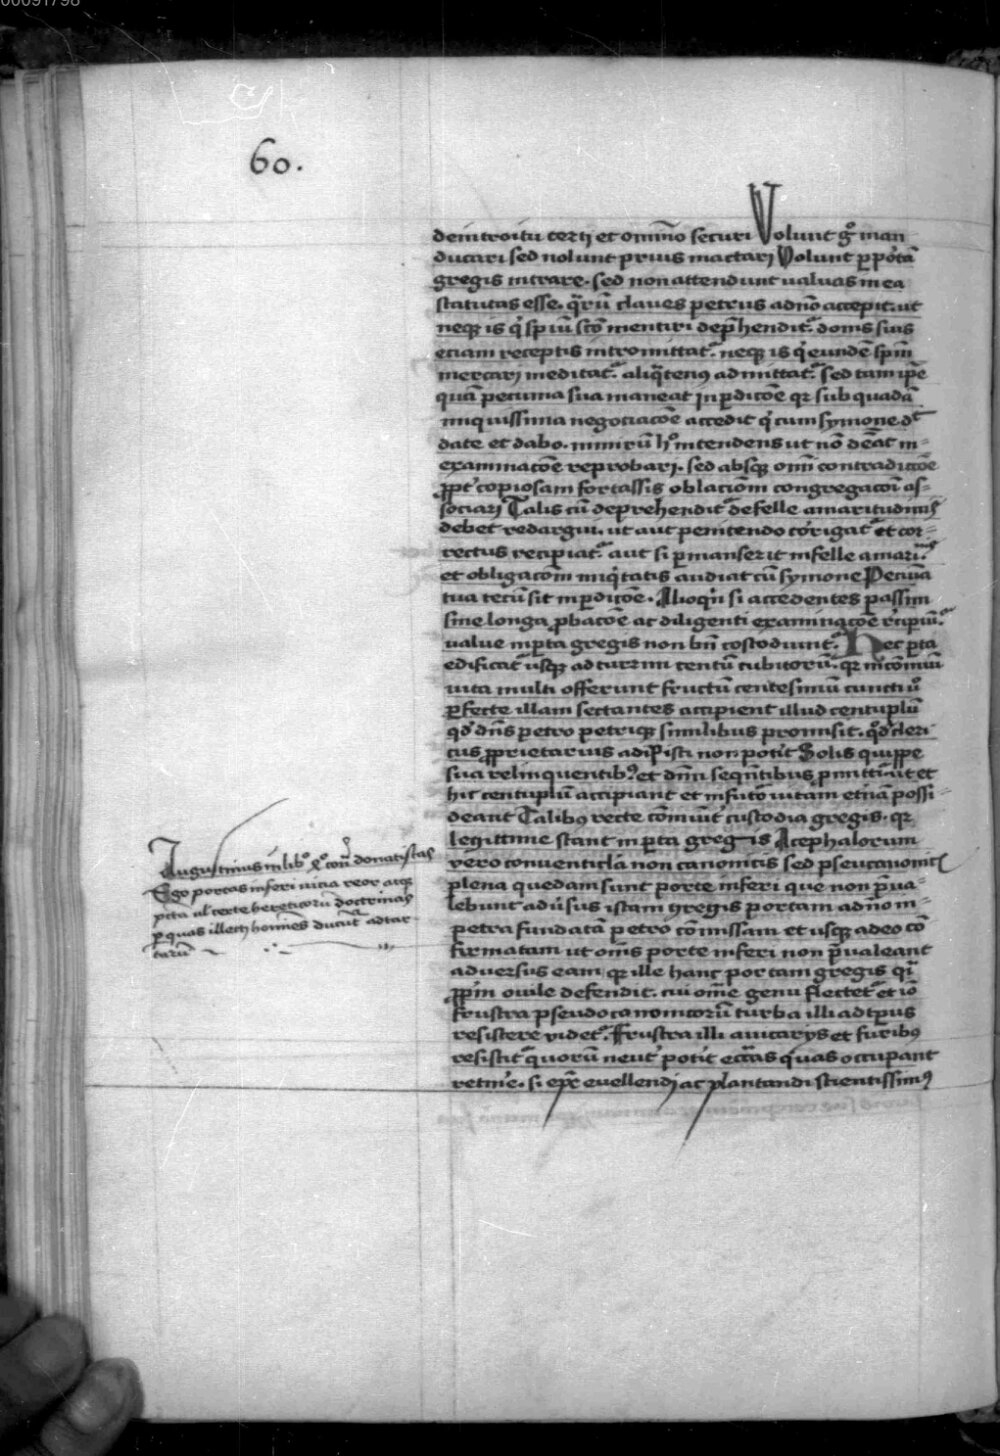 00091798
60.
de introitu certi et omnino securi Volunt gͦ man
ducari sed nolunt prius mactari Volunt p portā
gregis intrare. sed non attendunt ualuas in ea
statutas esse. qꝛū claues petrus a dn̄o accepit. ut
neqꝫ is qͥ spm̄ sc̄m mentiri dep̄hendit᷑ domꝰ suis
etiam receptis intromittat᷑. neqꝫ is qͥ eundē spm̄
mercari meditat᷑. aliqͣtenꝰ admittat᷑ sed tam ip̄e
quā pecunia sua maneat in p̱dicōe qꝛ sub quadā
iniquissima negociacōe accedit qͥ cum symone dt̄
date et dabo. nimirū hͦ intendens ut nō debeat in
examinacōe reprobari. sed absqꝫ omī contradictōe
ꝓpt̓ copiosam fortassis oblacionem congregacōi as
sociari Talis cū deprehendit᷑ de felle amaritudinis
debet redargui. ut aut penitendo corrigat᷑ et cor
rectus recipiat᷑. aut si p̱manserit in felle amari
et obligacōm iniqͥtatis audiat cū symone Pecunia
tua tecū sit in p̱dicōe. Alioqͥn si accedentes passim
sine longa ꝓbacōe ac diligenti examinacōe recipiūt᷑
ualue in porta gregis non bn̄ custodiunt᷑. Hec porta
edificat᷑ usqꝫ ad turrim centū cubitorū. qꝛ in cōmuni
uita multi offerunt fructū centesimū cuncti uͦ
p̱fecte illam sectantes accipient illud centuplū
qd̓ dn̄s petro petriqꝫ similibus promisit. qd̓ cleri
cus ꝓprietarius adipisci non potit Solis quippe
sua relinquentibꝰ et dn̄m seqn̄tibus ꝓmittit᷑ ut et
hic centuplū accipiant et in futō uitam et̓nā possi
deant Talibꝰ recte cōmitt᷑ custodia gregis. qꝛ
legittime stant in porta gregis Acephalorum
vero conuenticla non canonicis sed pseucanonicis
plena quedam sunt porte inferi que non p̄ua
lebunt adūsus istam gregis portam a dn̄o in
petra fundatā petro cōmissam et usqꝫ adeo cō
firmatam ut om̄s porte inferi non p̄ualeant
aduersus eam qꝛ ille hanc portam gregis qͥ
ꝓpm̄ ouile defendit. cui om̄e genu flectet᷑ et iō
frustra pseudocanonicorū turba illi ad tp̄us
resistere videt᷑. Frustra illi auicariis et furibꝰ
resistit᷑ quorū neut̓ potit ecc̄as quas occupant
retin̓e. si epc̄ euellendi ac plantandi scientissimꝰ
Augustinus in libͦ contͣ donatistas
Ego portas inferi uicia reor atqꝫ
pctā ul̓ certe hereticorū doctrinas
p̱ quas illecti homines ducunt᷑ ad tar
tarū